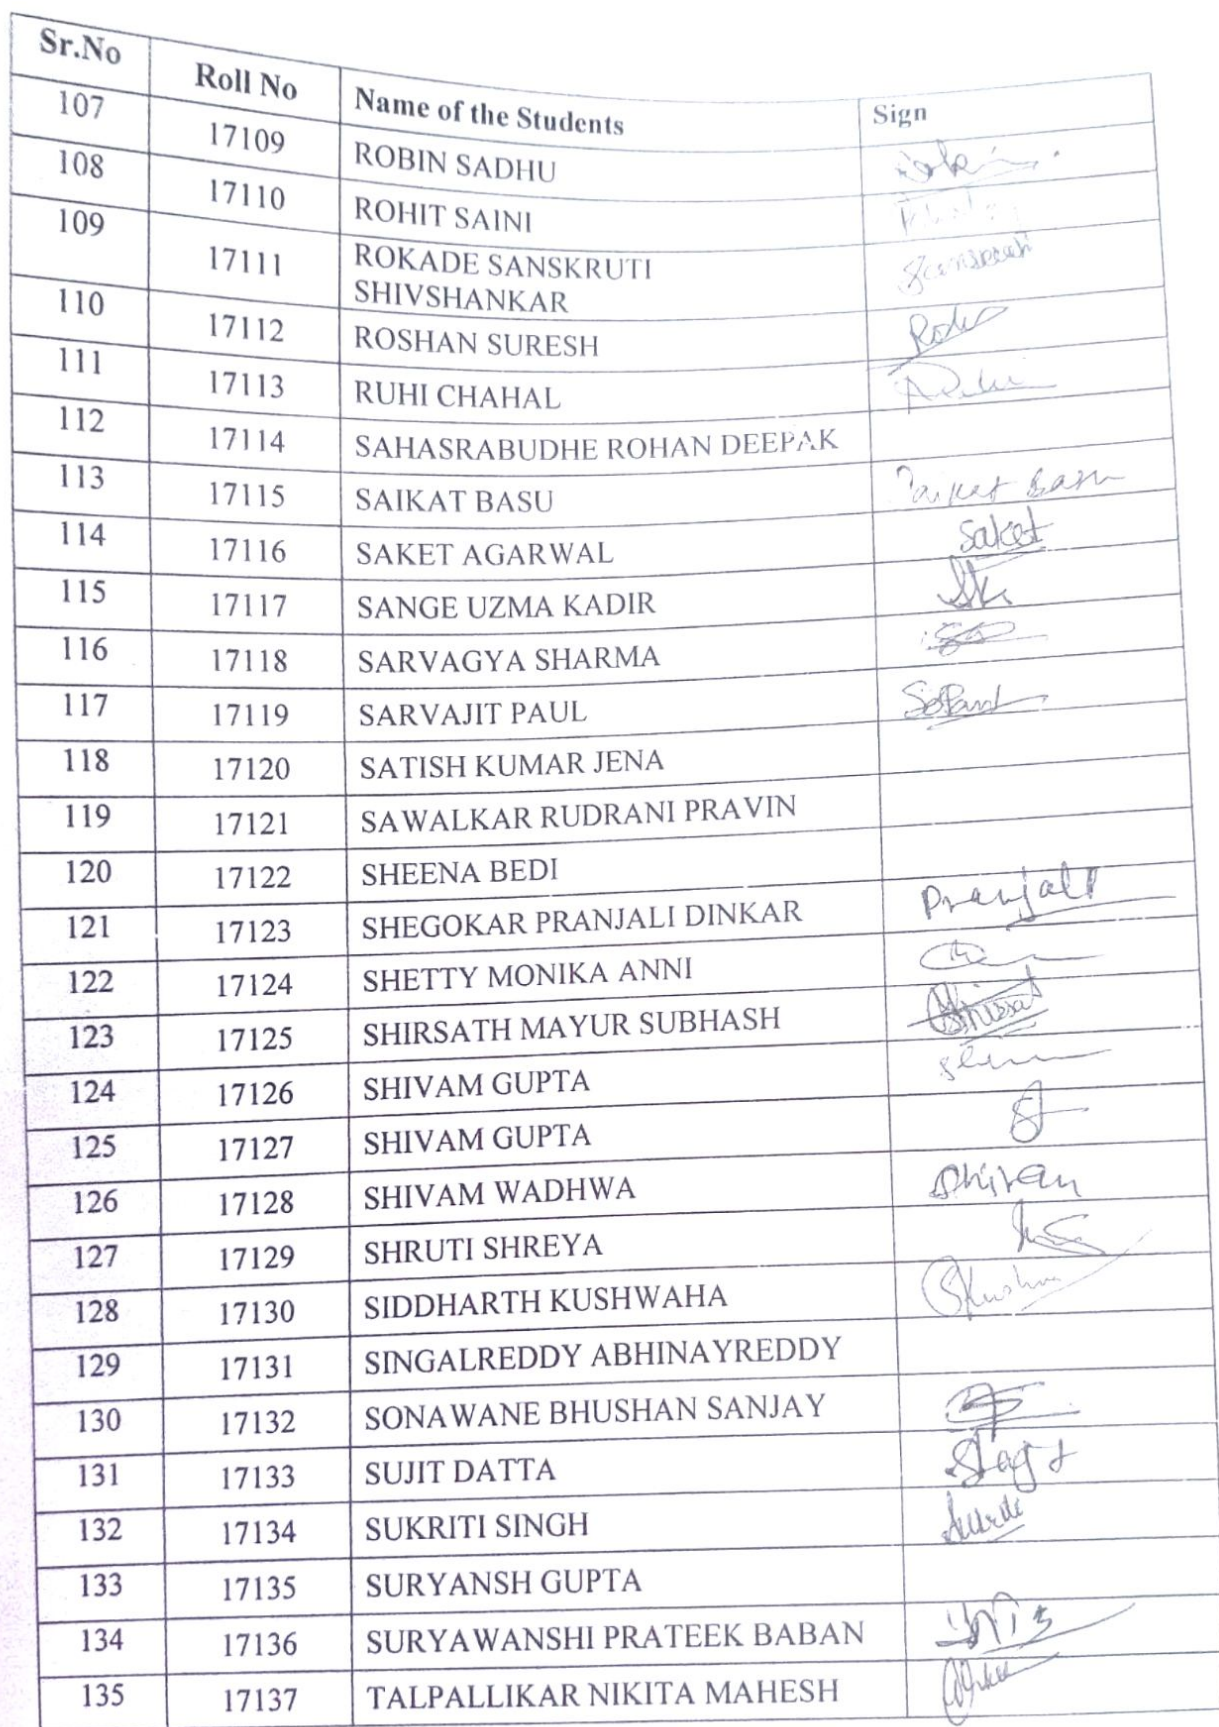 Sr.No Roll No Name of the Students Sign
107 17109 ROBIN SADHU
108 17110 ROHIT SAINI
109 17111 ROKADE SANSKRUTI
SHIVSHANKAR
110 17112 ROSHAN SURESH
111 17113 RUHI CHAHAL
112 17114 SAHASRABUDHE ROHAN DEEPAK
113 17115 SAIKAT BASU Saikat Basu
114 17116 SAKET AGARWAL Saket
115 17117 SANGE UZMA KADIR
116 17118 SARVAGYA SHARMA
117 17119 SARVAJIT PAUL
118 17120 SATISH KUMAR JENA
119 17121 SAWALKAR RUDRANI PRAVIN
120 17122 SHEENA BEDI
121 17123 SHEGOKAR PRANJALI DINKAR Pranjali
122 17124 SHETTY MONIKA ANNI
123 17125 SHIRSATH MAYUR SUBHASH
124 17126 SHIVAM GUPTA
125 17127 SHIVAM GUPTA
126 17128 SHIVAM WADHWA
127 17129 SHRUTI SHREYA
128 17130 SIDDHARTH KUSHWAHA
129 17131 SINGALREDDY ABHINAYREDDY
130 17132 SONAWANE BHUSHAN SANJAY
131 17133 SUJIT DATTA
132 17134 SUKRITI SINGH
133 17135 SURYANSH GUPTA
134 17136 SURYAWANSHI PRATEEK BABAN
135 17137 TALPALLIKAR NIKITA MAHESH